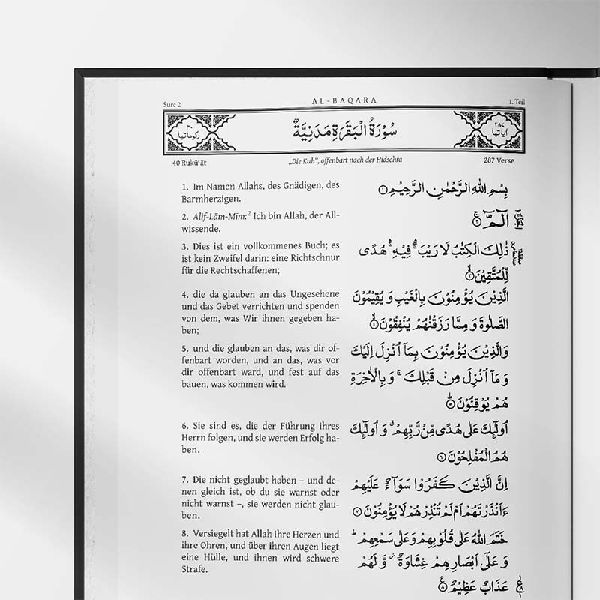 Sure 2 AL-BAQARA 1. Teil
سُوْرَةُ الْبَقَرَةِ مَدَنِيَّةٌ
40 Rukūʿāt „Die Kuh“, offenbart nach der Hidschra 287 Verse
1. Im Namen Allahs, des Gnädigen, des
Barmherzigen.
بِسْمِ اللّٰهِ الرَّحْمٰنِ الرَّحِيْمِ
2. Alif-Lām-Mīm: Ich bin Allah, der All-
wissende.
الٓمّٓ
3. Dies ist ein vollkommenes Buch; es
ist kein Zweifel darin: eine Richtschnur
für die Rechtschaffenen;
ذٰلِكَ الْكِتٰبُ لَا رَيْبَ فِيْهِ هُدًى
لِّلْمُتَّقِيْنَ
4. die da glauben an das Ungesehene
und das Gebet verrichten und spenden
von dem, was Wir ihnen gegeben ha-
ben;
الَّذِيْنَ يُؤْمِنُوْنَ بِالْغَيْبِ وَ يُقِيْمُوْنَ
الصَّلٰوةَ وَ مِمَّا رَزَقْنٰهُمْ يُنْفِقُوْنَ
5. und die glauben an das, was dir of-
fenbart worden, und an das, was vor
dir offenbart ward, und fest auf das
bauen, was kommen wird.
وَالَّذِيْنَ يُؤْمِنُوْنَ بِمَاۤ اُنْزِلَ اِلَيْكَ
وَ مَاۤ اُنْزِلَ مِنْ قَبْلِكَ وَ بِالْاٰخِرَةِ
هُمْ يُوْقِنُوْنَ
6. Sie sind es, die der Führung ihres
Herrn folgen, und sie werden Erfolg ha-
ben.
اُولٰٓئِكَ عَلٰى هُدًى مِّنْ رَّبِّهِمْ وَ اُولٰٓئِكَ
هُمُ الْمُفْلِحُوْنَ
7. Die nicht geglaubt haben – und de-
nen gleich ist, ob du sie warnst oder
nicht warnst –, sie werden nicht glau-
ben.
اِنَّ الَّذِيْنَ كَفَرُوْا سَوَآءٌ عَلَيْهِمْ
ءَاَنْذَرْتَهُمْ اَمْ لَمْ تُنْذِرْهُمْ لَا يُؤْمِنُوْنَ
8. Versiegelt hat Allah ihre Herzen und
ihre Ohren, und über ihren Augen liegt
eine Hülle, und ihnen wird schwere
Strafe.
خَتَمَ اللّٰهُ عَلٰى قُلُوْبِهِمْ وَ عَلٰى سَمْعِهِمْ
وَ عَلٰۤى اَبْصَارِهِمْ غِشَاوَةٌ وَّ لَهُمْ
عَذَابٌ عَظِيْمٌ